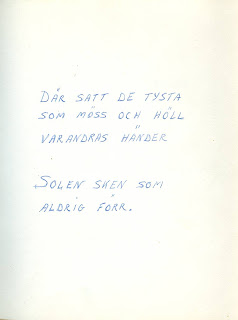 DÄR SATT DE TYSTA
SOM MÖSS OCH HÖLL
VARANDRAS HÄNDER
SOLEN SKEN SOM
ALDRIG FÖRR.